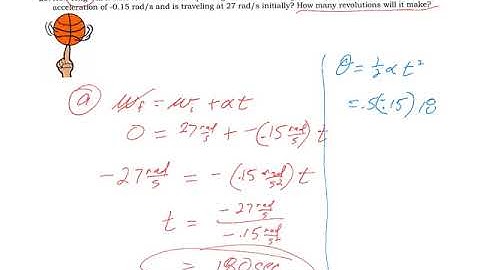 acceleration of -0.15 rad/s and is traveling at 27 rad/s initially? How many revolutions will it make?
ⓐ ω_f = ω_i + αt
0 = 27 rad/s + -(.15 rad/s²) t
-27 rad/s = -(.15 rad/s²) t
t = -27 rad/s / -.15 rad/s²
= 180 sec
θ = ½ α t²
= .5(-.15) 18